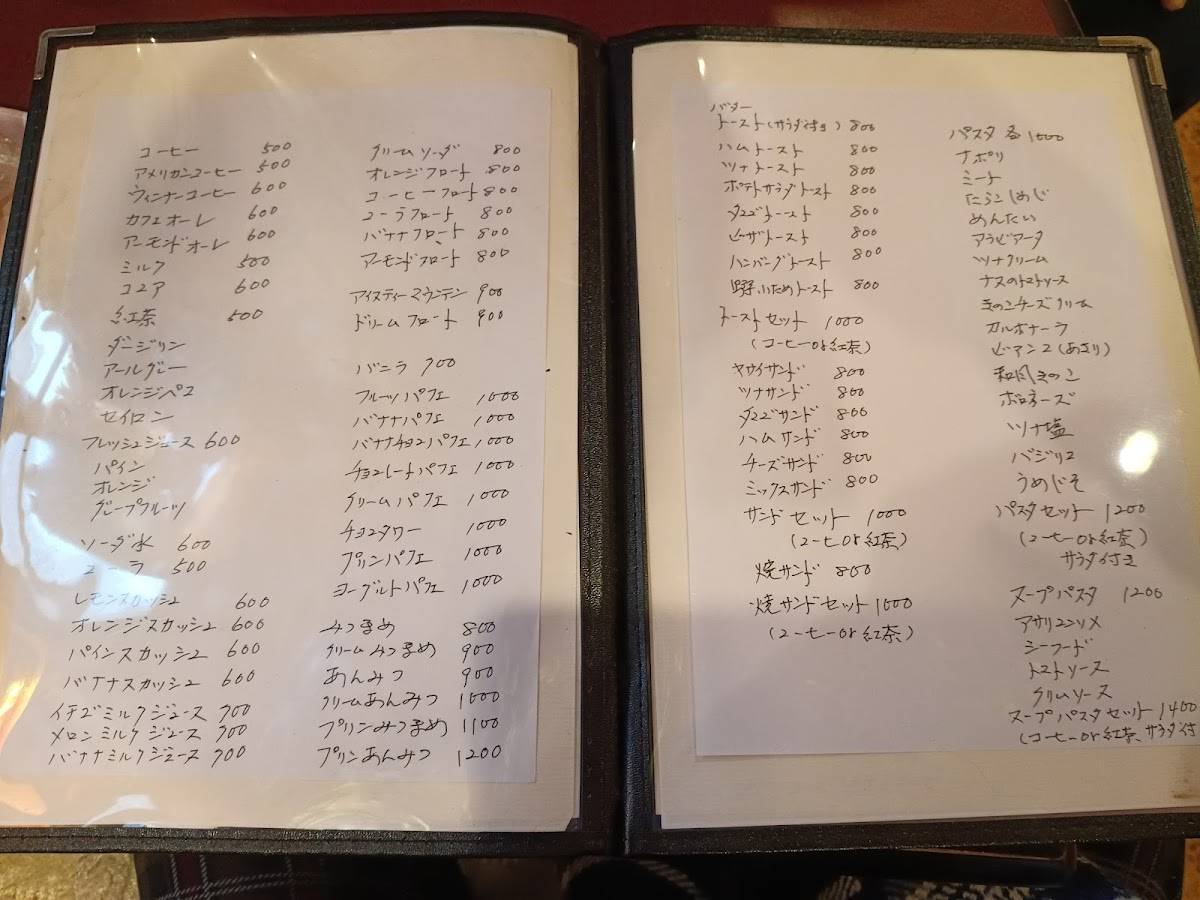 コーヒー 500
アメリカンコーヒー 500
ウィンナーコーヒー 600
カフェオーレ 600
アーモンドオーレ 600
ミルク 500
ココア 600
紅茶 500
ダージリン
アールグレー
オレンジペコ
セイロン
フレッシュジュース 600
パイン
オレンジ
グレープフルーツ
ソーダ水 600
コーラ 500
レモンスカッシュ 600
オレンジスカッシュ 600
パインスカッシュ 600
バナナスカッシュ 600
イチゴミルクジュース 700
メロンミルクジュース 700
バナナミルクジュース 700
クリームソーダ 800
オレンジフロート 800
コーヒーフロート 800
コーラフロート 800
バナナフロート 800
アーモンドフロート 800
アイスティーマウンテン 900
ドリームフロート 900
バニラ 700
フルーツパフェ 1000
バナナパフェ 1000
バナナチョコパフェ 1000
チョコレートパフェ 1000
クリームパフェ 1000
チョコタワー 1000
プリンパフェ 1000
ヨーグルトパフェ 1000
みつまめ 800
クリームみつまめ 900
あんみつ 900
クリームあんみつ 1000
プリンみつまめ 1100
プリンあんみつ 1200
バター
トースト(サラダ付き) 800
ハムトースト 800
ツナトースト 800
ポテトサラダトースト 800
タマゴトースト 800
ピザトースト 800
ハンバーグトースト 800
野菜いためトースト 800
トーストセット 1000
(コーヒーor紅茶)
ヤサイサンド 800
ツナサンド 800
タマゴサンド 800
ハムサンド 800
チーズサンド 800
ミックスサンド 800
サンドセット 1000
(コーヒーor紅茶)
焼サンド 800
焼サンドセット 1000
(コーヒーor紅茶)
パスタ 各1000
ナポリ
ミート
たらこしめじ
めんたい
アラビアータ
ツナクリーム
ナスのトマトソース
きのこチーズクリーム
カルボナーラ
ビアンコ(あさり)
和風きのこ
ボロネーズ
ツナ塩
バジリコ
うめじそ
パスタセット 1200
(コーヒーor紅茶)
サラダ付き
スープパスタ 1200
アサリコンソメ
シーフード
トマトソース
クリムソース
スープパスタセット 1400
(コーヒーor紅茶、サラダ付